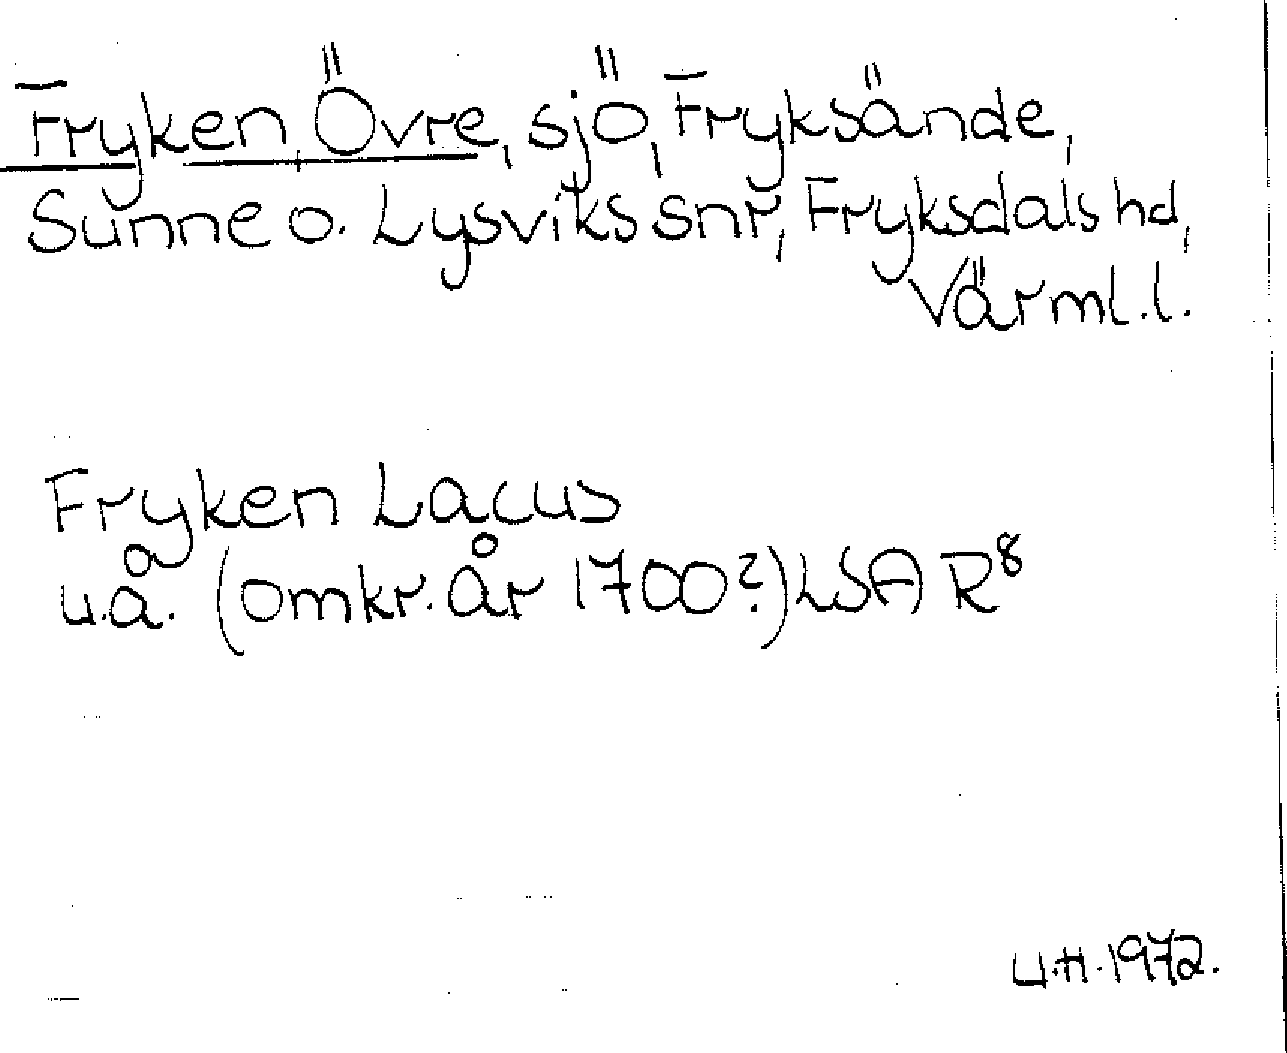 Fryken, Övre, sjö, Fryksände,
Sunne o. Lysviks snr, Fryksdals hd,
Värml. l.
Fryken Lacus
u.å. (omkr. år 1700?) LSA R⁸
U.H. 1972.